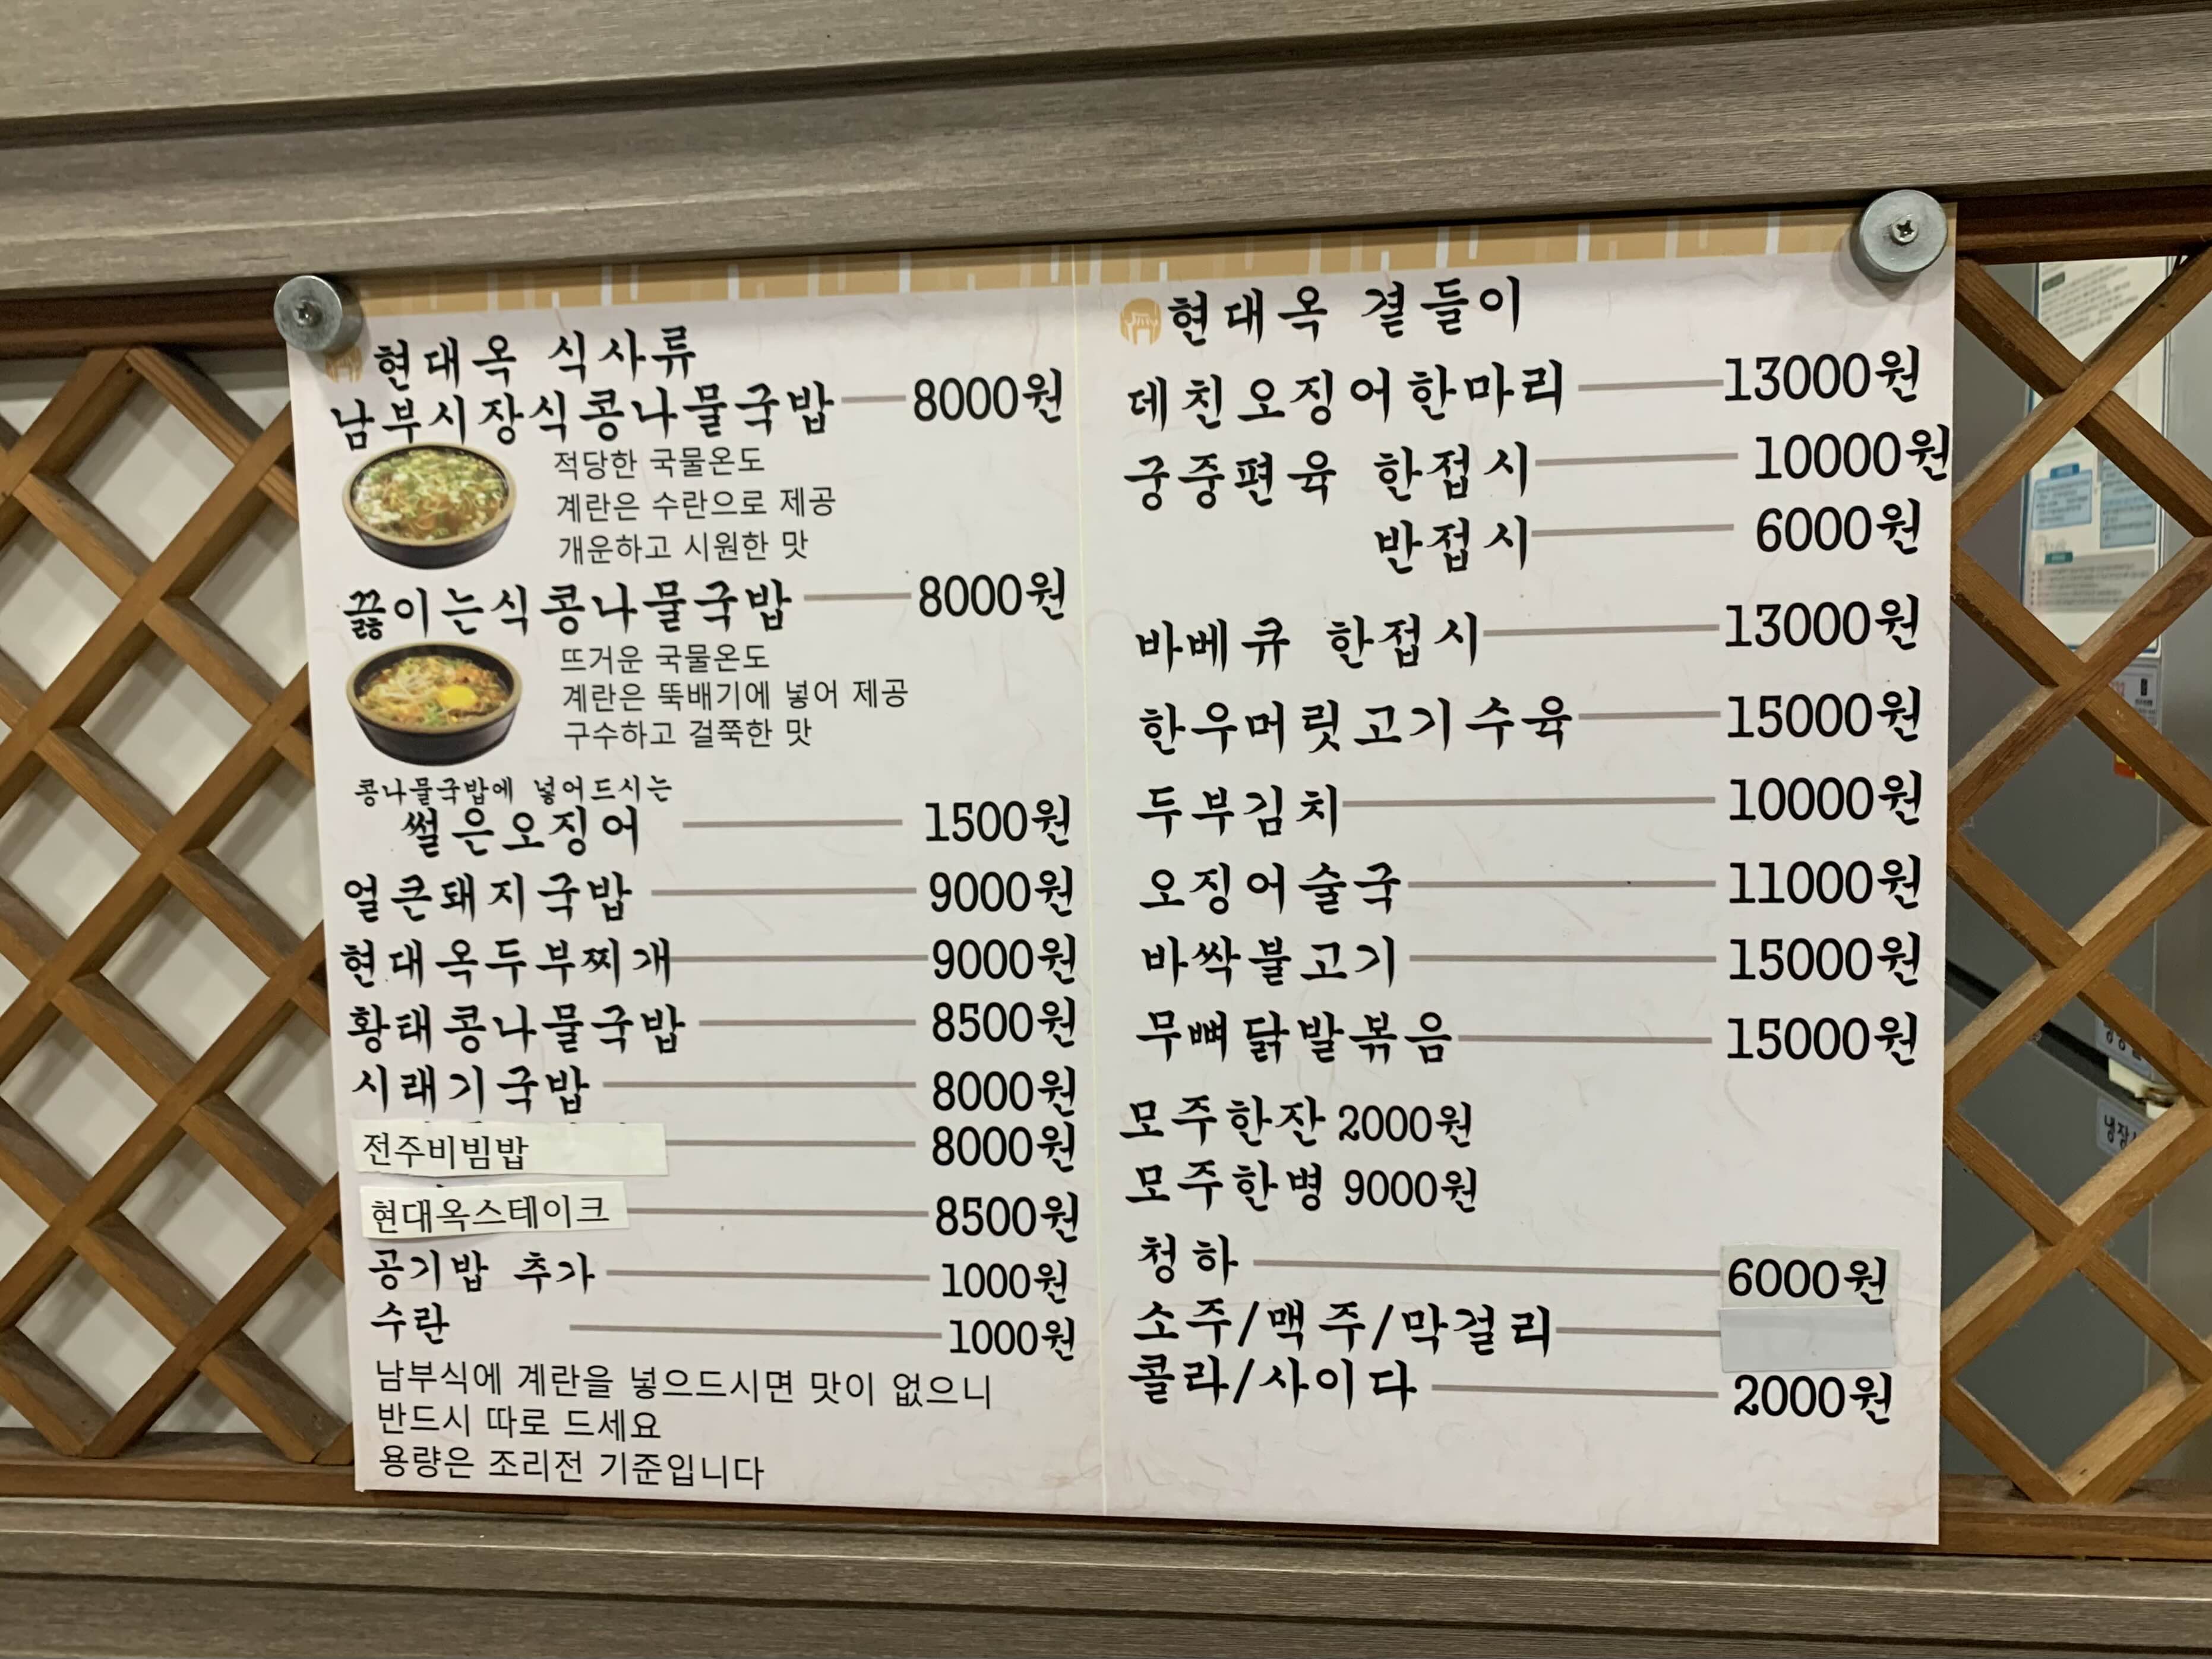 현대옥 식사류
남부시장식콩나물국밥 8000원
적당한 국물온도
계란은 수란으로 제공
개운하고 시원한 맛
끓이는식콩나물국밥 8000원
뜨거운 국물온도
계란은 뚝배기에 넣어 제공
구수하고 걸쭉한 맛
콩나물국밥에 넣어드시는
썰은오징어 1500원
얼큰돼지국밥 9000원
현대옥두부찌개 9000원
황태콩나물국밥 8500원
시래기국밥 8000원
전주비빔밥 8000원
현대옥스테이크 8500원
공기밥 추가 1000원
수란 1000원
남부식에 계란을 넣으드시면 맛이 없으니
반드시 따로 드세요
용량은 조리전 기준입니다
현대옥 곁들이
데친오징어한마리 13000원
궁중편육 한접시 10000원
반접시 6000원
바베큐 한접시 13000원
한우머릿고기수육 15000원
두부김치 10000원
오징어술국 11000원
바싹불고기 15000원
무뼈닭발볶음 15000원
모주한잔 2000원
모주한병 9000원
청하 6000원
소주/맥주/막걸리
콜라/사이다 2000원